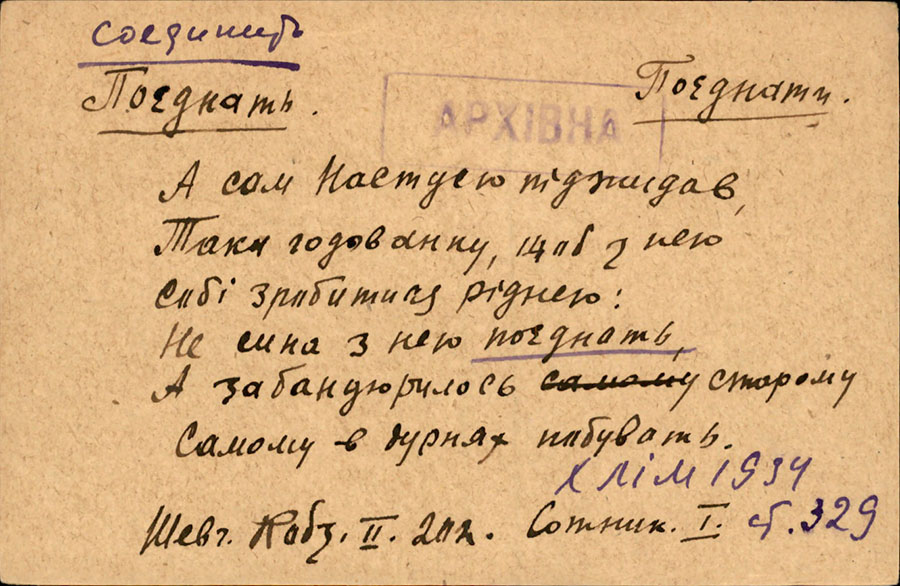 соединить
Поєднать. Поєднати.
АРХІВНА
А сам Настусею піджидав,
Таки годованку, щоб з нею
собі зробитися ріднею:
Не сина з нею поєднать,
А забандюрилось самому старому
самому в дурнях побувать.
Х ЛІМ 1934
Шевч. Кобз. II. Сотник. I. ст. 329